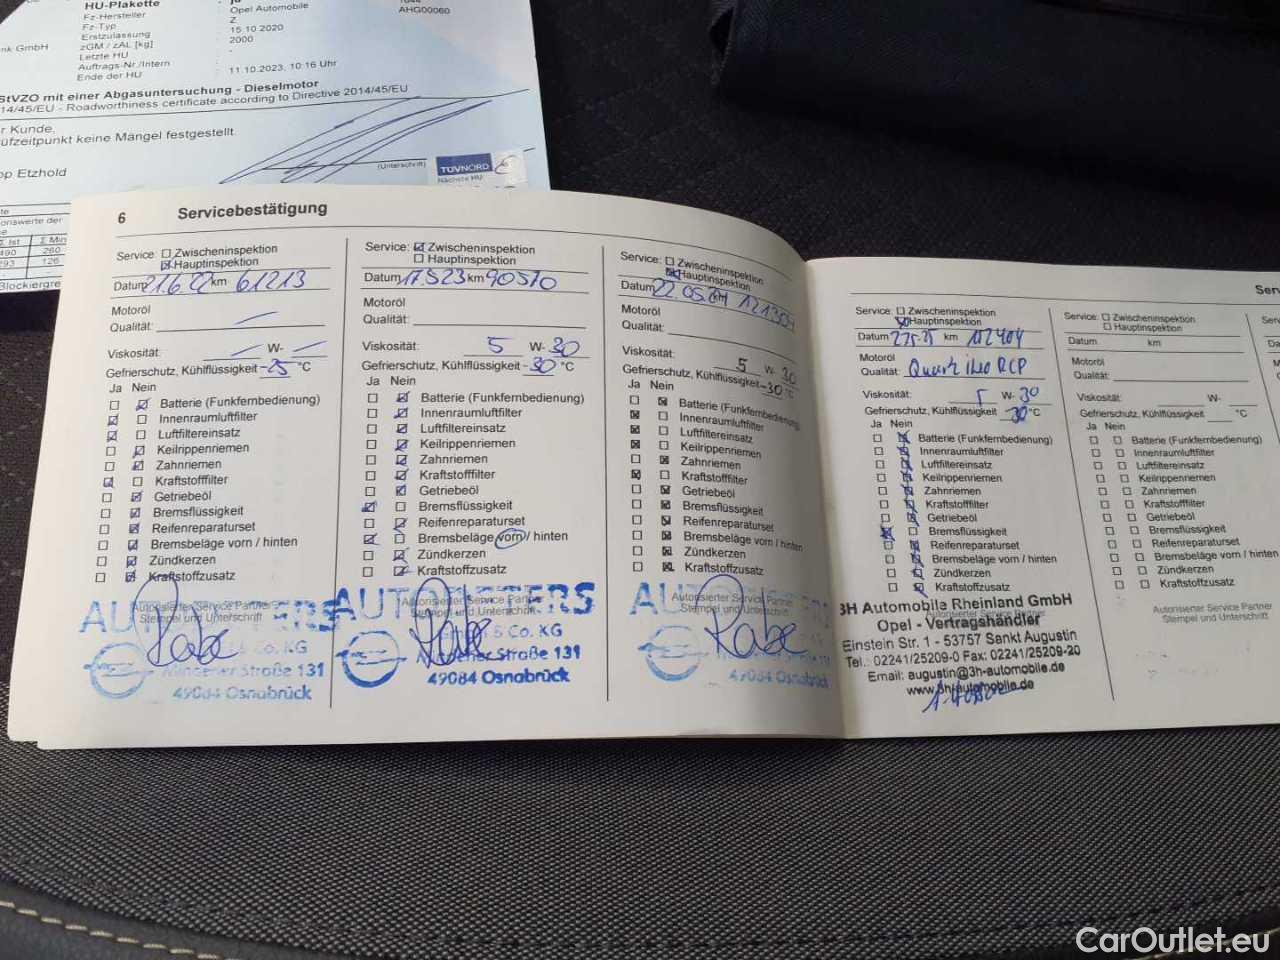 HU-Plakette : ja
Fz-Hersteller : Opel Automobile
AHG00060
Fz-Typ : Z
Erstzulassung : 15.10.2020
nk GmbH
zGM / zAL [kg] : 2000
Letzte HU : -
Auftrags-Nr./Intern :
Ende der HU : 11.10.2023, 10:16 Uhr
StVZO mit einer Abgasuntersuchung - Dieselmotor
14/45/EU - Roadworthiness certificate according to Directive 2014/45/EU
r Kunde,
üfzeitpunkt keine Mängel festgestellt.
(Unterschrift)
TÜVNORD
Nächste HU
pp Etzhold
onswerte der
Σ Ist Σ Min
490 260
293 126
Blockiergre
6 Servicebestätigung
Service: Zwischeninspektion
Hauptinspektion
Datum 21.6.22 km 61213
Motoröl
Qualität:
Viskosität: W-
Gefrierschutz, Kühlflüssigkeit -25 °C
Ja Nein
Batterie (Funkfernbedienung)
Innenraumluftfilter
Luftfiltereinsatz
Keilrippenriemen
Zahnriemen
Kraftstofffilter
Getriebeöl
Bremsflüssigkeit
Reifenreparaturset
Bremsbeläge vorn / hinten
Zündkerzen
Kraftstoffzusatz
Autorisierter Service Partner
Stempel und Unterschrift
AUTO
Co. KG
Mindener Straße 131
49084 Osnabrück
Service: Zwischeninspektion
Hauptinspektion
Datum 17.5.23 km 90570
Motoröl
Qualität:
Viskosität: 5 W- 30
Gefrierschutz, Kühlflüssigkeit -30 °C
Ja Nein
Batterie (Funkfernbedienung)
Innenraumluftfilter
Luftfiltereinsatz
Keilrippenriemen
Zahnriemen
Kraftstofffilter
Getriebeöl
Bremsflüssigkeit
Reifenreparaturset
Bremsbeläge vorn / hinten
Zündkerzen
Kraftstoffzusatz
Autorisierter Service Partner
Stempel und Unterschrift
AUTO PETERS
GmbH & Co. KG
Mindener Straße 131
49084 Osnabrück
Service: Zwischeninspektion
Hauptinspektion
Datum 22.05.24 km 121304
Motoröl
Qualität:
Viskosität: 5 W- 30
Gefrierschutz, Kühlflüssigkeit -30 °C
Ja Nein
Batterie (Funkfernbedienung)
Innenraumluftfilter
Luftfiltereinsatz
Keilrippenriemen
Zahnriemen
Kraftstofffilter
Getriebeöl
Bremsflüssigkeit
Reifenreparaturset
Bremsbeläge vorn / hinten
Zündkerzen
Kraftstoffzusatz
Autorisierter Service Partner
Stempel und Unterschrift
49084 Osnabrück
Ser
Service: Zwischeninspektion
Hauptinspektion
Datum 27.5.25 km 152404
Motoröl
Qualität: Quartz ineo RCP
Viskosität: 5 W- 30
Gefrierschutz, Kühlflüssigkeit 30 °C
Ja Nein
Batterie (Funkfernbedienung)
Innenraumluftfilter
Luftfiltereinsatz
Keilrippenriemen
Zahnriemen
Kraftstofffilter
Getriebeöl
Bremsflüssigkeit
Reifenreparaturset
Bremsbeläge vorn / hinten
Zündkerzen
Kraftstoffzusatz
3H Automobile Rheinland GmbH
Autorisierter Service Partner
Opel - Vertragshändler
Einstein Str. 1 - 53757 Sankt Augustin
Tel.: 02241/25209-0 Fax: 02241/25209-20
Email: augustin@3h-automobile.de
www.3h-automobile.de
Service: Zwischeninspektion
Hauptinspektion
Datum km
Motoröl
Qualität:
Viskosität: W-
Gefrierschutz, Kühlflüssigkeit °C
Ja Nein
Batterie (Funkfernbedienung)
Innenraumluftfilter
Luftfiltereinsatz
Keilrippenriemen
Zahnriemen
Kraftstofffilter
Getriebeöl
Bremsflüssigkeit
Reifenreparaturset
Bremsbeläge vorn / hinten
Zündkerzen
Kraftstoffzusatz
Autorisierter Service Partner
Stempel und Unterschrift
CarOutlet.eu